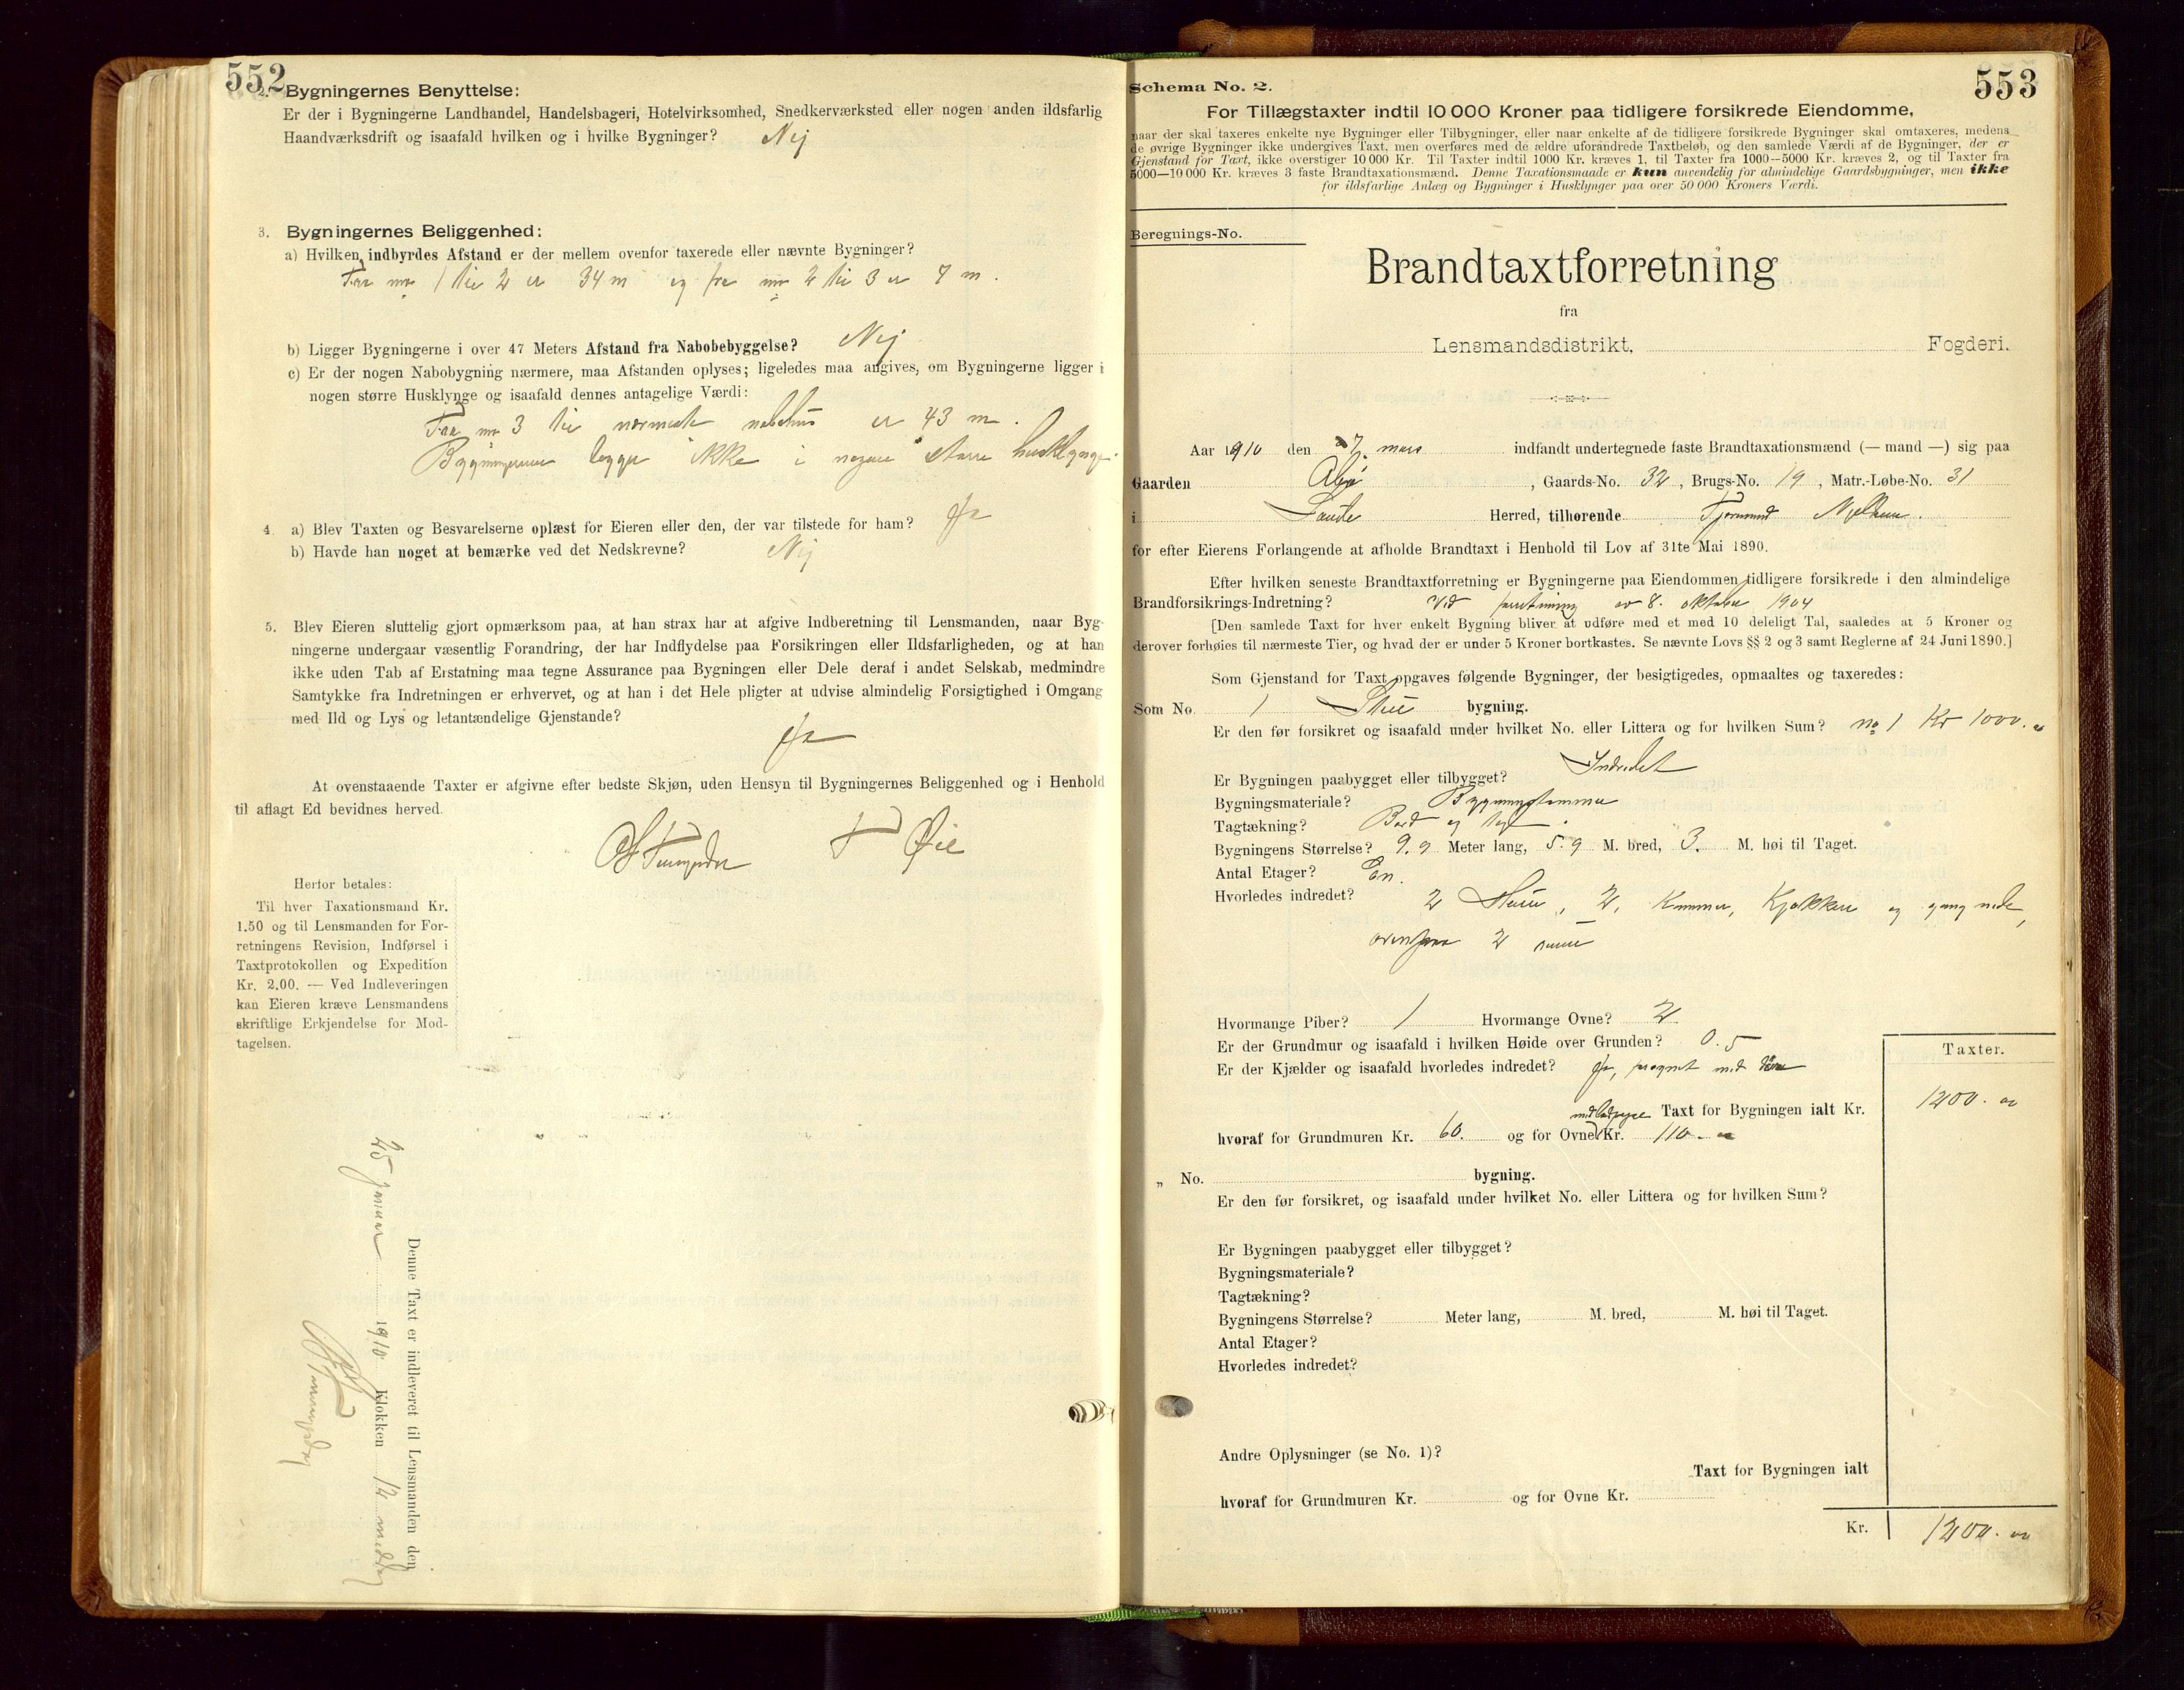 552
2. Bygningernes Benyttelse:
Er der i Bygningerne Landhandel, Handelsbageri, Hotelvirksomhed, Snedkerværksted eller nogen anden ildsfarlig
Haandværksdrift og isaafald hvilken og i hvilke Bygninger? Nej
3. Bygningernes Beliggenhed:
a) Hvilken indbyrdes Afstand er der mellem ovenfor taxerede eller nævnte Bygninger?
Fra no 1 til 2 er 34 m og fra no 2 til 3 er 7 m.
b) Ligger Bygningerne i over 47 Meters Afstand fra Nabobebyggelse? Nej
c) Er der nogen Nabobygning nærmere, maa Afstanden oplyses; ligeledes maa angives, om Bygningerne ligger i
nogen større Husklynge og isaafald dennes antagelige Værdi:
Fra no 3 til nærmeste nabohus er 43 m.
Bygningerne ligger ikke i nogen større husklynge.
4. a) Blev Taxten og Besvarelserne oplæst for Eieren eller den, der var tilstede for ham? Ja
b) Havde han noget at bemærke ved det Nedskrevne? Nej
5. Blev Eieren sluttelig gjort opmærksom paa, at han strax har at afgive Indberetning til Lensmanden, naar Byg-
ningerne undergaar væsentlig Forandring, der har Indflydelse paa Forsikringen eller Ildsfarligheden, og at han
ikke uden Tab af Erstatning maa tegne Assurance paa Bygningen eller Dele deraf i andet Selskab, medmindre
Samtykke fra Indretningen er erhvervet, og at han i det Hele pligter at udvise almindelig Forsigtighed i Omgang
med Ild og Lys og letantændelige Gjenstande?
Ja
At ovenstaaende Taxter er afgivne efter bedste Skjøn, uden Hensyn til Bygningernes Beliggenhed og i Henhold
til aflagt Ed bevidnes herved.
T Øie
Herfor betales:
Til hver Taxationsmand Kr.
1.50 og til Lensmanden for For-
retningens Revision, Indførsel i
Taxtprotokollen og Expedition
Kr. 2.00. — Ved Indleveringen
kan Eieren kræve Lensmandens
skriftlige Erkjendelse for Mod-
tagelsen.
Denne Taxt er indleveret til Lensmanden den
25 januar 1910 Klokken 12 middag
553
Schema No. 2.
For Tillægstaxter indtil 10 000 Kroner paa tidligere forsikrede Eiendomme,
naar der skal taxeres enkelte nye Bygninger eller Tilbygninger, eller naar enkelte af de tidligere forsikrede Bygninger skal omtaxeres, medens
de øvrige Bygninger ikke undergives Taxt, men overføres med de ældre uforandrede Taxtbeløb, og den samlede Værdi af de Bygninger, der er
Gjenstand for Taxt, ikke overstiger 10 000 Kr. Til Taxter indtil 1000 Kr. kræves 1, til Taxter fra 1000—5000 Kr. kræves 2, og til Taxter fra
5000—10 000 Kr. kræves 3 faste Brandtaxationsmænd. Denne Taxationsmaade er kun anvendelig for almindelige Gaardsbygninger, men ikke
for ildsfarlige Anlæg og Bygninger i Husklynger paa over 50 000 Kroners Værdi.
Beregnings-No.
Brandtaxtforretning
fra
Lensmandsdistrikt, Fogderi.
Aar 1910 den 7. mars indfandt undertegnede faste Brandtaxationsmænd (— mand —) sig paa
Gaarden , Gaards-No. 32, Brugs-No. 19, Matr.-Løbe-No. 31
i Saude Herred, tilhørende
for efter Eierens Forlangende at afholde Brandtaxt i Henhold til Lov af 31te Mai 1890.
Efter hvilken seneste Brandtaxtforretning er Bygningerne paa Eiendommen tidligere forsikrede i den almindelige
Brandforsikrings-Indretning? Ved forretning av 8. oktober 1904
[Den samlede Taxt for hver enkelt Bygning bliver at udføre med et med 10 deleligt Tal, saaledes at 5 Kroner og
derover forhøies til nærmeste Tier, og hvad der er under 5 Kroner bortkastes. Se nævnte Lovs §§ 2 og 3 samt Reglerne af 24 Juni 1890.]
Som Gjenstand for Taxt opgaves følgende Bygninger, der besigtigedes, opmaaltes og taxeredes:
Som No. 1 Stue bygning.
Er den før forsikret og isaafald under hvilket No. eller Littera og for hvilken Sum? no 1 Kr 1000.
Er Bygningen paabygget eller tilbygget? Indredet
Bygningsmateriale? Bygningstømmer
Tagtækning? Bord og
Bygningens Størrelse? 9.9 Meter lang, 5.9 M. bred, 3. M. høi til Taget.
Antal Etager? En.
Hvorledes indredet? 2 Stuer, 2 Kammer, Kjøkken og gang nede,
ovenpaa 2 rum
Hvormange Piber? 1 Hvormange Ovne? 2
Er der Grundmur og isaafald i hvilken Høide over Grunden? 0.5
Er der Kjælder og isaafald hvorledes indredet? Ja, med
Taxter.
Taxt for Bygningen ialt Kr. 1200. oo
hvoraf for Grundmuren Kr. 60. og for Ovne Kr. 110.
„ No. bygning.
Er den før forsikret, og isaafald under hvilket No. eller Littera og for hvilken Sum?
Er Bygningen paabygget eller tilbygget?
Bygningsmateriale?
Tagtækning?
Bygningens Størrelse? Meter lang, M. bred, M. høi til Taget.
Antal Etager?
Hvorledes indredet?
Andre Oplysninger (se No. 1)?
Taxt for Bygningen ialt
hvoraf for Grundmuren Kr. og for Ovne Kr.
Kr. 1200. oo